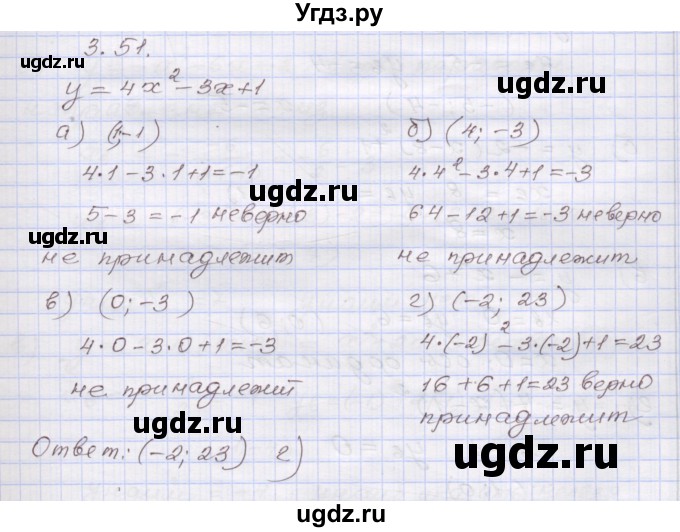 Угдз.ру
3.51.
ugdz.ru
y = 4x² - 3x + 1
а) (1; -1)
4·1 - 3·1 + 1 = -1
5 - 3 = -1 неверно
ugdz.ru
не принадлежит
б) (4; -3)
4·4² - 3·4 + 1 = -3
ugdz.ru
64 - 12 + 1 = -3 неверно
не принадлежит
в) (0; -3)
ugdz.ru
4·0 - 3·0 + 1 = -3
не принадлежит
г) (-2; 23)
ugdz.ru
4·(-2)² - 3·(-2) + 1 = 23
16 + 6 + 1 = 23 верно
принадлежит
ugdz.ru
Ответ: (-2; 23) г)
ugdz.ru
ugdz.ru